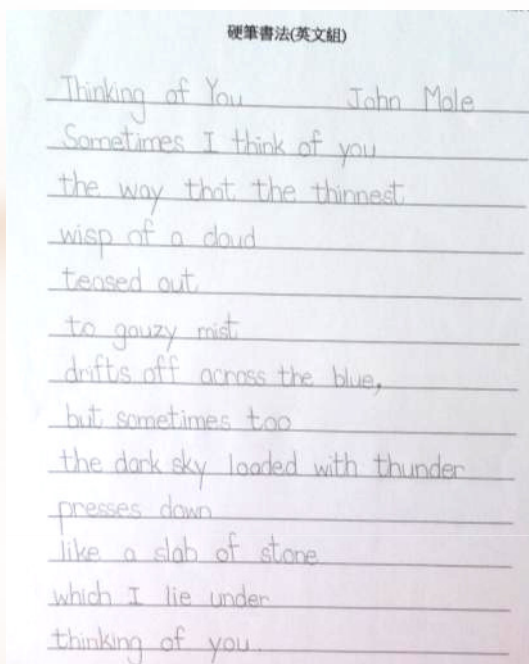 硬筆書法(英文組)
Thinking of You John Mole
Sometimes I think of you
the way that the thinnest
wisp of a cloud
teased out
to gauzy mist
drifts off across the blue,
but sometimes too
the dark sky loaded with thunder
presses down
like a slab of stone
which I lie under
thinking of you.